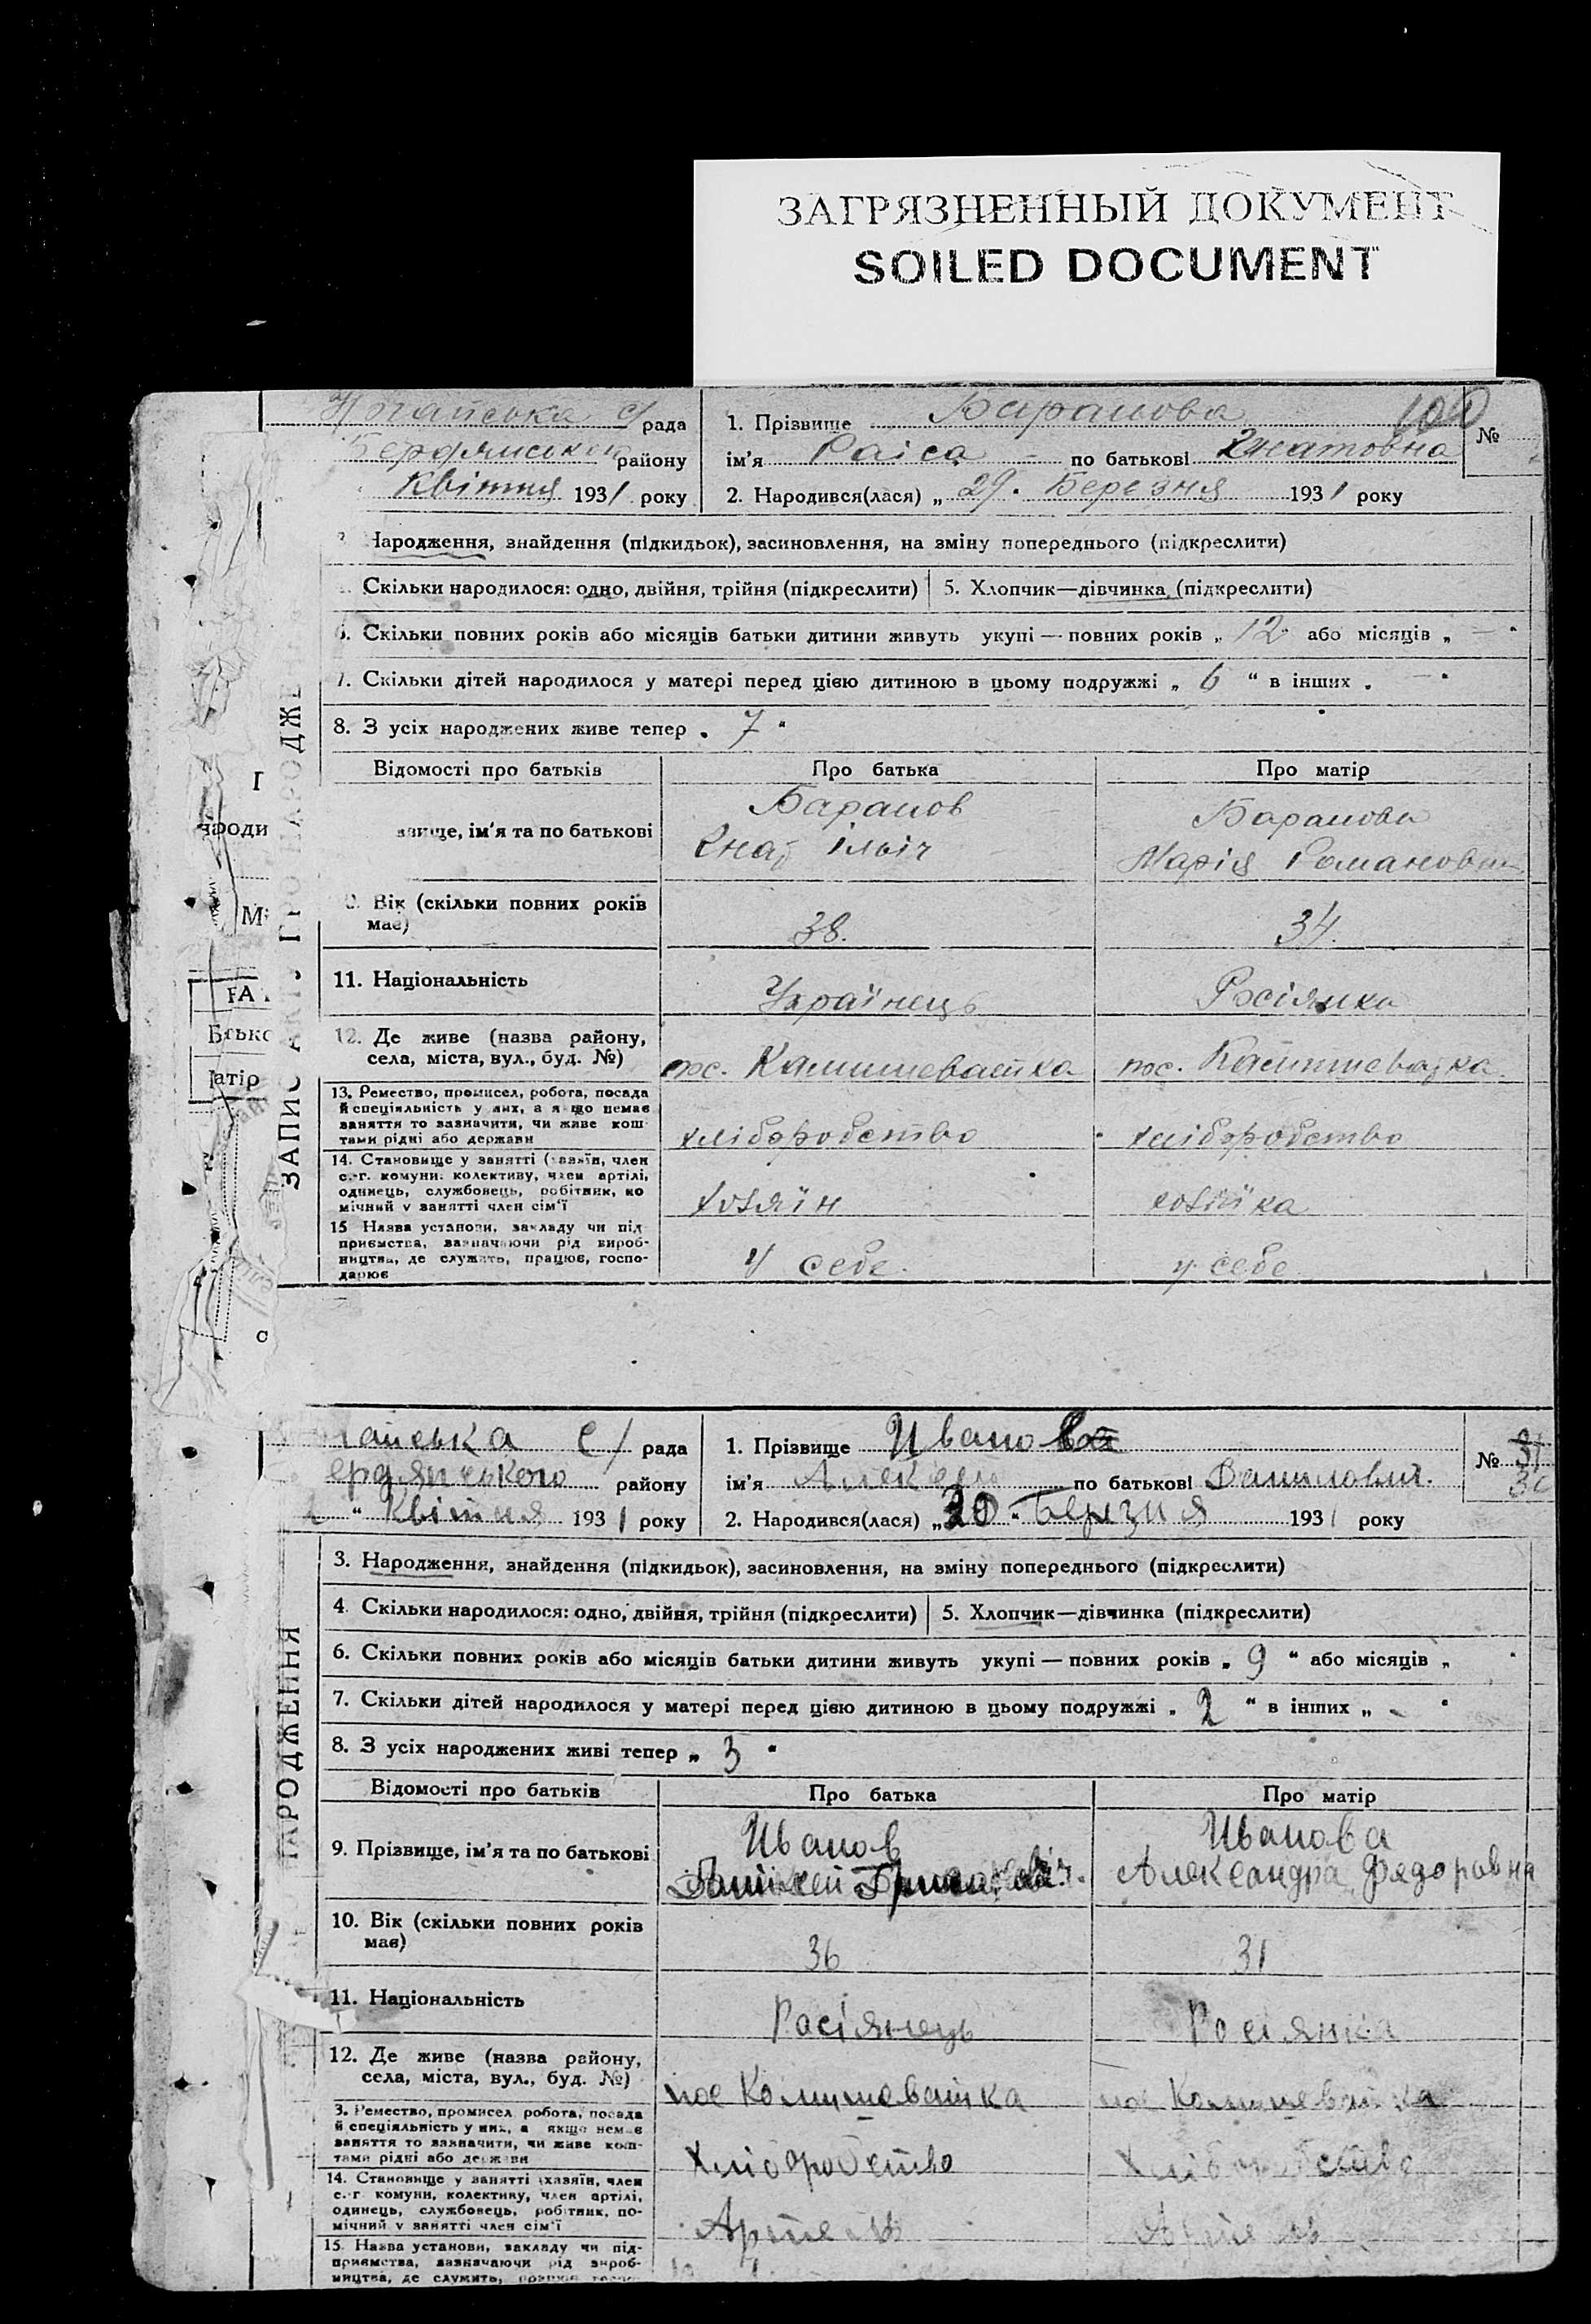 ЗАГРЯЗНЕННЫЙ ДОКУМЕНТ
SOILED DOCUMENT
Ногайська с/рада
Бердянського району
Квітня 1931 року
1. Прізвище Баранова
100
№
ім'я Раіса по батькові Гнатовна
2. Народився(лася) „ 29 " Березня 1931 року
Народження, знайдення (підкидьок), засиновлення, на зміну попереднього (підкреслити)
Скільки народилося: одно, двійня, трійня (підкреслити)
5. Хлопчик—дівчинка (підкреслити)
6. Скільки повних років або місяців батьки дитини живуть укупі — повних років „ 12 " або місяців „ — "
7. Скільки дітей народилося у матері перед цією дитиною в цьому подружжі „ 6 " в інших „ — "
8. З усіх народжених живе тепер „ 7 "
Відомості про батьків
Про батька
Про матір
звище, ім'я та по батькові
Баранов
Гнат Ільіч
Баранова
Марія Романовна
Вік (скільки повних років
має)
38.
34.
11. Національність
Українець
Росіянка
12. Де живе (назва району,
села, міста, вул., буд. №)
пос. Камишеватка
пос. Камишеватка
13. Ремество, промисел, робота, посада
й спеціяльність у них, а якщо немає
заняття то зазначити, чи живе кош-
тами рідні або держави
хліборобство
хліборобство
14. Становище у занятті (хазяїн, член
с.-г. комуни, колективу, член артілі,
одинець, службовець, робітник, по
мічний у занятті член сім'ї
хозяїн
хозяйка
15 Назва установи, закладу чи під-
приємства, зазначаючи рід вироб-
ництва, де служить, працює, госпо-
дарює
у себе.
у себе
ЗАПИС
НАРОДЖЕ
гайська с/ рада
ердянського району
" Квітня 1931 року
1. Прізвище Иванов
№ 31
30
ім'я Алексей по батькові
2. Народився(лася) „ 30 " Березня 1931 року
3. Народження, знайдення (підкидьок), засиновлення, на зміну попереднього (підкреслити)
4. Скільки народилося: одно, двійня, трійня (підкреслити)
5. Хлопчик—дівчинка (підкреслити)
6. Скільки повних років або місяців батьки дитини живуть укупі — повних років „ 9 " або місяців „ "
7. Скільки дітей народилося у матері перед цією дитиною в цьому подружжі „ 2 " в інших „ - "
8. З усіх народжених живі тепер „ 3 "
Відомості про батьків
Про батька
Про матір
9. Прізвище, ім'я та по батькові
Иванов
Иванова
Александра Фядоровна
10. Вік (скільки повних років
має)
36
31
11. Національність
Расіянець
Росіянка
12. Де живе (назва району,
села, міста, вул., буд. №)
пос Комишеватка
пос Комишеватка
3. Ремество, промисел робота, посада
й спеціяльність у них, а якщо немає
заняття то зазначити, чи живе кош-
тами рідні або держави
Хліборобство
Хліборобство
14. Становище у занятті (хазяїн, член
с.-г комуни, колективу, член артілі,
одинець, службовець, робітник, по-
мічний у занятті член сім'ї
Артель
Артель
15. Назва установи, закладу чи під-
приємства, зазначаючи рід вироб-
ництва, де служить, працює
НАРОДЖЕННЯ